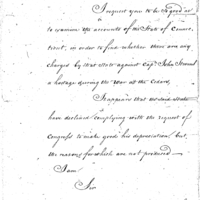 I request you to be so good as
to examine the accounts of the State of Connec
ticut, in order to find whether there are any
charges by that State against Capt John Stevens
a hostage during the War at the Cedars.
It appears that the said State
have declined complying with the request of
Congress to make good his depreciation but
the reasons for which are not produced.
I am
Sir